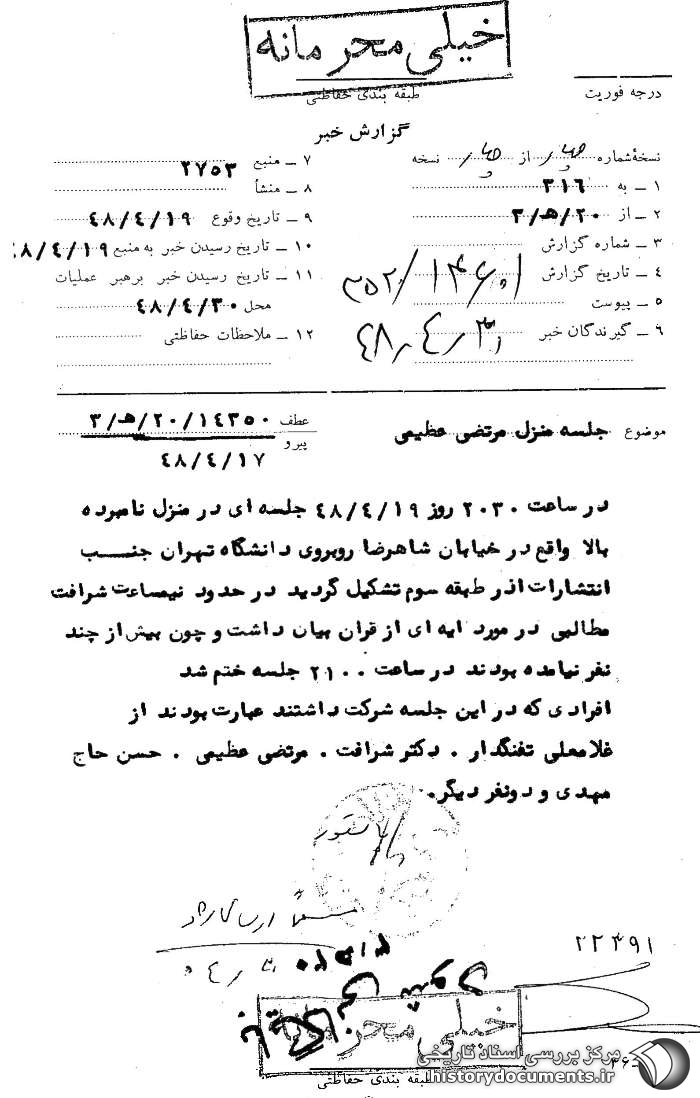 خیلی محرمانه
طبقه بندی حفاظتی
درجه فوریت
گزارش خبر
نسخهٔ شماره از نسخه
۱ ـ به ۳۱۶
۲ ـ از ۲۰/هـ/۳
۳ ـ شماره گزارش
۴ ـ تاریخ گزارش
۵ ـ پیوست
۶ ـ گیرندگان خبر
۷ ـ منبع ۲۷۵۳
۸ ـ منشأ
۹ ـ تاریخ وقوع ۴۸/۴/۱۹
۱۰ ـ تاریخ رسیدن خبر به منبع ۴۸/۴/۱۹
۱۱ ـ تاریخ رسیدن خبر برهبر عملیات
محل ۴۸/۴/۳۰
۱۲ ـ ملاحظات حفاظتی
موضوع جلسه منزل مرتضی عظیمی
عطف ۳/هـ/۲۰/۱۴۳۵۰
پیرو
۴۸/۴/۱۷
در ساعت ۲۰۳۰ روز ۴۸/۴/۱۹ جلسه ای در منزل نامبرده
بالا واقع در خیابان شاهرضا روبروی دانشگاه تهران جنب
انتشارات اذر طبقه سوم تشکیل گردید در حدود نیمساعت شرافت
مطالبی در مورد ایه ای از قران بیان داشت و چون بیش از چند
نفر نیامده بودند در ساعت ۲۱۰۰ جلسه ختم شد
افرادی که در این جلسه شرکت داشتند عبارت بودند از
غلامعلی تفنگدار . دکتر شرافت . مرتضی عظیمی . حسن حاج
مهدی و دو نفر دیگر .
۲۲۴۹۱
بایگانی شود
خیلی محرمانه
طبقه بندی حفاظتی
مرکز بررسی اسناد تاریخی
historydocuments.ir